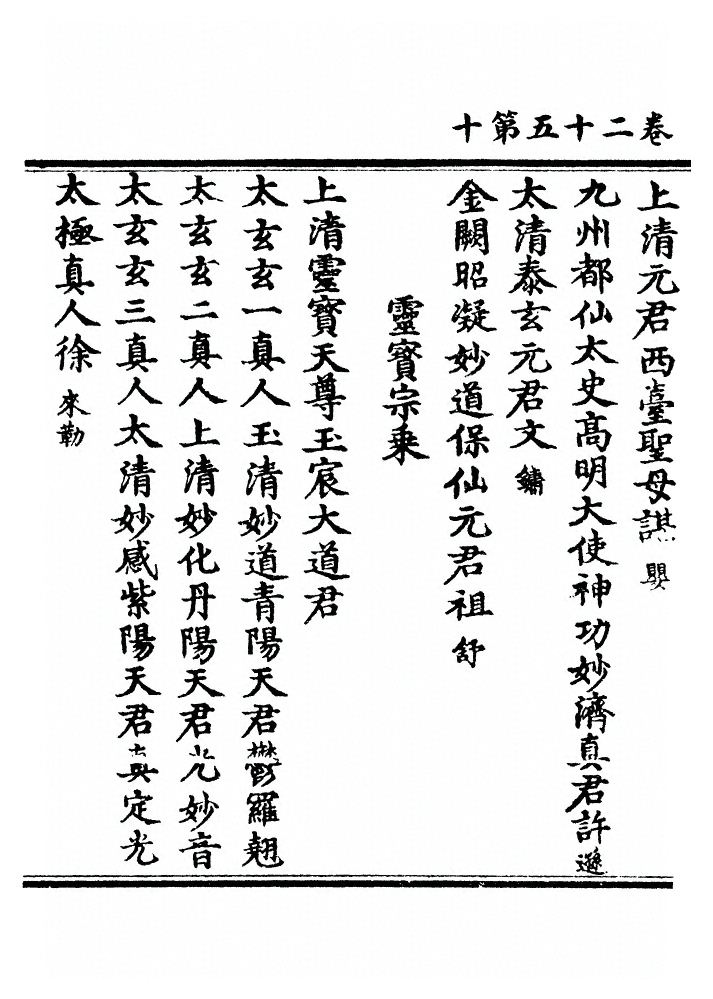 卷二十五第十
上清元君西臺聖母諶嬰
九州都仙太史高明大使神功妙濟真君許遜
太清泰玄元君文鏽
金闕昭凝妙道保仙元君祖舒
靈寶宗乘
上清靈寶天尊玉宸大道君
太玄玄一真人玉清妙道青陽天君鬱羅翹
太玄玄二真人上清妙化丹陽天君光妙音
太玄玄三真人太清妙感紫陽天君真定光
太極真人徐來勒